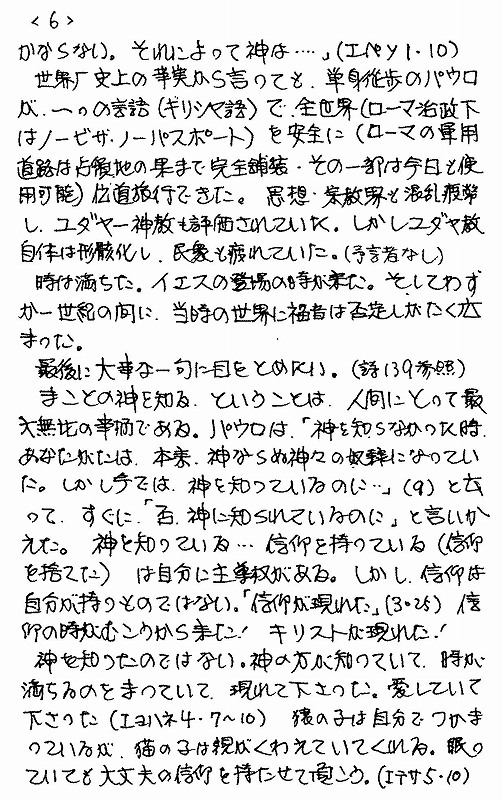 <6>
かならない。それによって神は‥‥」(エペソ1・10)
世界歴史上の事実から言っても、単身徒歩のパウロ
が、一つの言語(ギリシヤ語)で、全世界(ローマ治政下
はノービザ・ノーパスポート)を安全に(ローマの軍用
道路は占領地の果まで完全舗装・その一部は今日も使
用可能)伝道旅行できた。思想・宗教界も混乱疲弊
し、ユダヤ一神教も評価されていた。しかしユダヤ教
自体は形骸化し、民衆も疲れていた。(予言者なし)
時は満ちた。イエスの登場の時が来た。そしてわず
か一世紀の間に、当時の世界に福音は否定しがたく広
まった。
最後に大事な一句に目をとめたい。(詩139参照)
まことの神を知る、ということは、人間にとって最
大無比の幸福である。パウロは、「神を知らなかった時、
あなたがたは、本来、神ならぬ神々の奴隷になってい
た。しかし今では、神を知っているのに‥」(9)と云
って、すぐに、「否、神に知られているのに」と言いか
えた。神を知っている‥‥信仰を持っている(信仰
を捨てた)は自分に主導权がある。しかし、信仰は
自分が持つものではない。「信仰が現れた」(3・25)信
仰の時がむこうから来た!キリストが現れた!
神を知ったのではない。神の方が知っていて、時が
満ちるのをまっていて、現れて下さった。愛していて
下さった(Iヨハネ4・7~10)猿の子は自分でつかま
っているが、猫の子は親がくわえていてくれる。眠っ
ていても大丈夫の信仰を持たせて頂こう。(Iテサ5・10)